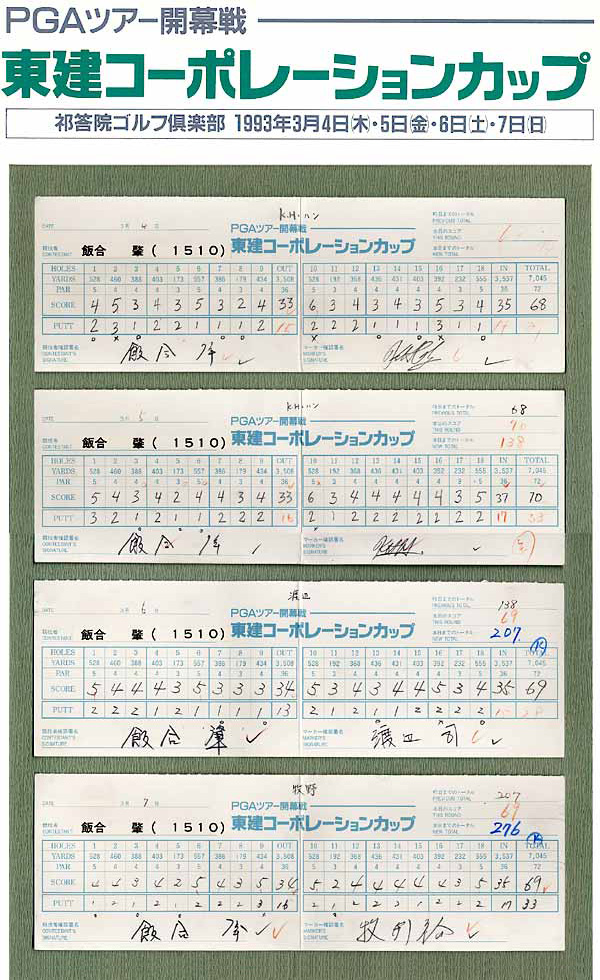 PGAツアー開幕戦
東建コーポレーションカップ
祁答院ゴルフ倶楽部 1993年3月4日(木)・5日(金)・6日(土)・7日(日)
K.H.ハン
DATE 3月 4日
PGAツアー開幕戦
東建コーポレーションカップ
競技者 CONTESTANT 飯合 肇 ( 1510 )
前日までのトータル PREVIOUS TOTAL
本日のスコア THIS ROUND
本日までのトータル NEW TOTAL
HOLES 1 2 3 4 5 6 7 8 9 OUT 10 11 12 13 14 15 16 17 18 IN TOTAL
YARDS 528 460 388 403 173 557 386 179 434 3,508 528 192 368 436 431 403 392 232 555 3,537 7,045
PAR 5 4 4 4 3 5 4 3 4 36 5 3 4 4 4 4 4 3 5 36 72
SCORE 4 5 3 4 3 5 3 2 4 33 6 3 4 3 4 3 5 3 4 35 68
PUTT 2 3 1 2 2 1 1 1 2 15 2 2 2 1 1 1 3 1 1
競技者確認署名 CONTESTANT'S SIGNATURE 飯合
マーカー確認署名 MARKER'S SIGNATURE
K.H.ハン
DATE 3月 5日
PGAツアー開幕戦
東建コーポレーションカップ
競技者 CONTESTANT 飯合 肇 ( 1510 )
前日までのトータル PREVIOUS TOTAL 68
本日のスコア THIS ROUND 70
本日までのトータル NEW TOTAL 138
HOLES 1 2 3 4 5 6 7 8 9 OUT 10 11 12 13 14 15 16 17 18 IN TOTAL
YARDS 528 460 388 403 173 557 386 179 434 3,508 528 192 368 436 431 403 392 232 555 3,537 7,045
PAR 5 4 4 4 3 5 4 3 4 36 5 3 4 4 4 4 4 3 5 36 72
SCORE 5 4 3 4 2 4 4 3 4 33 6 3 4 4 4 4 4 3 5 37 70
PUTT 3 2 1 2 1 1 2 2 2 16 2 1 2 2 2 2 2 2 2 17 33
競技者確認署名 CONTESTANT'S SIGNATURE 飯合
マーカー確認署名 MARKER'S SIGNATURE
渡辺
DATE 3月 6日
PGAツアー開幕戦
東建コーポレーションカップ
競技者 CONTESTANT 飯合 肇 ( 1510 )
前日までのトータル PREVIOUS TOTAL 138
本日のスコア THIS ROUND 69
本日までのトータル NEW TOTAL 207
HOLES 1 2 3 4 5 6 7 8 9 OUT 10 11 12 13 14 15 16 17 18 IN TOTAL
YARDS 528 460 388 403 173 557 386 179 434 3,508 528 192 368 436 431 403 392 232 555 3,537 7,045
PAR 5 4 4 4 3 5 4 3 4 36 5 3 4 4 4 4 4 3 5 36 72
SCORE 5 4 4 4 3 5 3 3 3 34 5 3 4 3 4 4 5 3 4 35 69
PUTT 2 2 2 1 2 2 1 1 1 13 2 1 2 1 1 2 2 2 2
競技者確認署名 CONTESTANT'S SIGNATURE 飯合
マーカー確認署名 MARKER'S SIGNATURE 渡辺 司
牧野
DATE 3月 7日
PGAツアー開幕戦
東建コーポレーションカップ
競技者 CONTESTANT 飯合 肇 ( 1510 )
前日までのトータル PREVIOUS TOTAL 207
本日のスコア THIS ROUND 69
本日までのトータル NEW TOTAL 276
HOLES 1 2 3 4 5 6 7 8 9 OUT 10 11 12 13 14 15 16 17 18 IN TOTAL
YARDS 528 460 388 403 173 557 386 179 434 3,508 528 192 368 436 431 403 392 232 555 3,537 7,045
PAR 5 4 4 4 3 5 4 3 4 36 5 3 4 4 4 4 4 3 5 36 72
SCORE 4 4 3 4 2 5 4 3 5 34 5 2 4 4 4 4 4 3 5 35 69
PUTT 1 2 1 2 1 2 2 2 3 16 2 1 2 2 2 2 2 2 2 17 33
競技者確認署名 CONTESTANT'S SIGNATURE 飯合
マーカー確認署名 MARKER'S SIGNATURE 牧野 裕